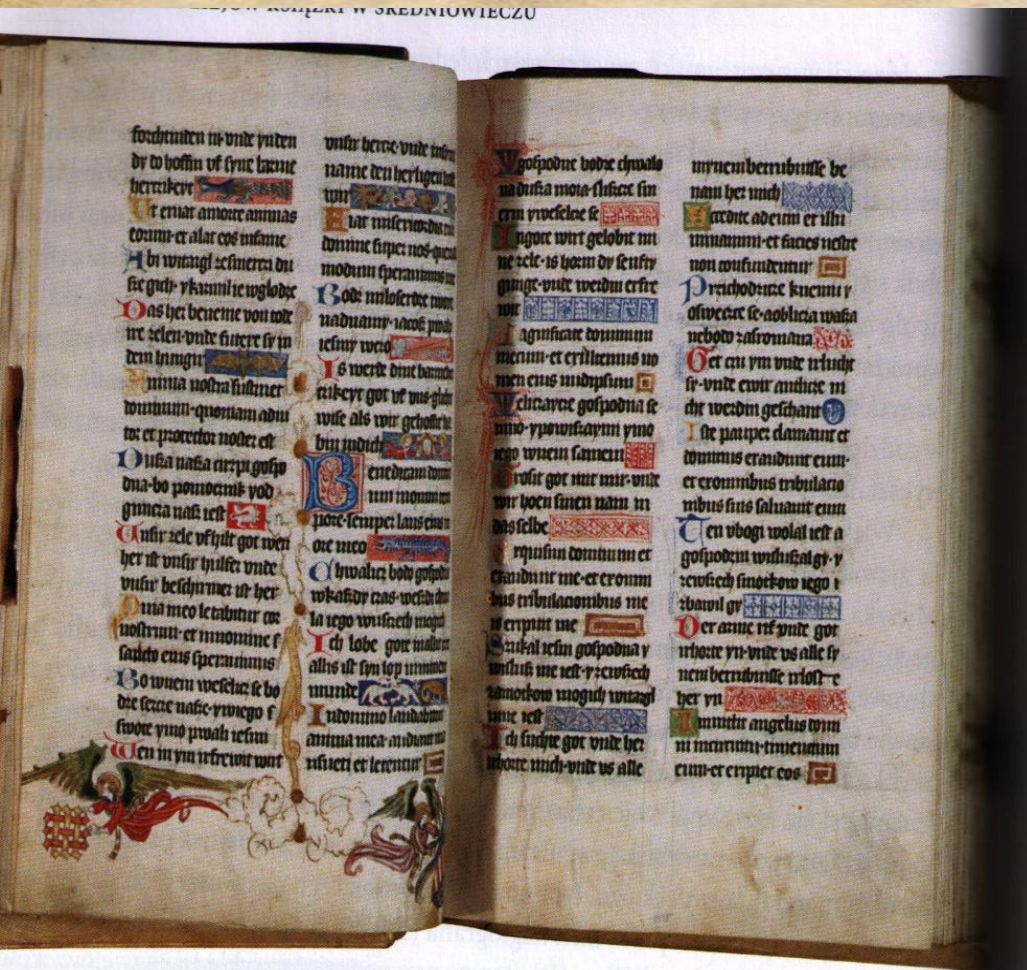 KSIĄŻKI W ŚREDNIOWIECZU
forchtinden in· vnde yn den
dy do hoffin vf syne barme
herczikeyt
Ut eruat a morte animas
eorum· et alat eos in fame
Abi witargl z smerci du
sze gich· y karmil ie w glodze
Das her beneme von tode
ire zelen· vnde fuere sy in
dem hungir
Anima nostra sustinet
dominum· quoniam adiu
tor et protector noster est
Dusza nasza cirzpi gospo
dna· bo pomocnik y od
gimcia nasz iest
Unsir zele vf hilt got wen
her ist vnsir hulfer vnde
vnsir beschirmer ist her
Quia in eo letabitur cor
nostrum· et in nomine s
sancto eius sperauimus
Bo w nem weselicz se bo
dze sercze nasze· y w iego s
swote ymo pwali iesmi
Wen in ym irfrewit wirt
vnsir hercze· vnde in
name den heyligen
wir
Fiat misericordia
domine super nos· que
modum sperauimus
Bodz miloserdze twoie
nad nami· iacosz pwali
iesmy we czo
Is werde dine barmhe
czikeyt got vf vns· gliche
wise als wir gehoffit
bin in dich
Benedicam dom
num in omni tem
pore· semper laus eius in
ore meo
Chwalicz bodo gospodna
w kaszdy czas· weszdi chwa
la iego w uscech mogich
Ich lobe gote in allir
allis ist syn lop in minem
munde
In domino laudabitur
anima mea· audiant ma
nsueti et letentur
W gospodne bodze chwalo
na dusza moia· sliszcze sm
erni y weselcze se
In gote wirt gelobit mi
ne zele· is horin dy senfty
ginge· vnde werdin erfre
wit
Magnificate dominum
mecum· et exaltemus no
men eius in id ipsum
Weliczaycze gospodna se
mno· y powiszaymi ymo
iego w nem samem
Grosit got mit mir· vnde
wir hoen sinen nam in
das selbe
Exquisiui dominum et
exaudiuit me· et ex omni
bus tribulacionibus me
is eripuit me
Szukal iesm gospodna y
wislusz me iest· y ze wszech
zamotkow mogich witargl
mne iest
Ich suchte got vnde her
irhorte mich· vnde vs alle
mynem betrubnisse be
nam her mich
Accedite ad eum et illu
minamini· et facies uestre
non confundentur
Przichodzcze k nemu y
oswecce se· a oblicza wasza
ne bodo zasromana
Get czu ym vnde irlucht
sy· vnde ewir antlicze ni
cht werdin geschant
Iste pauper clamauit et
dominus exaudiuit eum·
et ex omnibus tribulacio
nibus suis saluauit eum
Ten vbogi wolal iest a
gospodzin wisluszal gy· y
ze wszech smotkow iego i
zbawil gy
Der arme rif vnde got
irhorte yn· vnde vs alle sy
nem betrubnisse irlost e
her yn
Immittit angelus domi
ni in circuitu timencium
eum· et eripiet eos